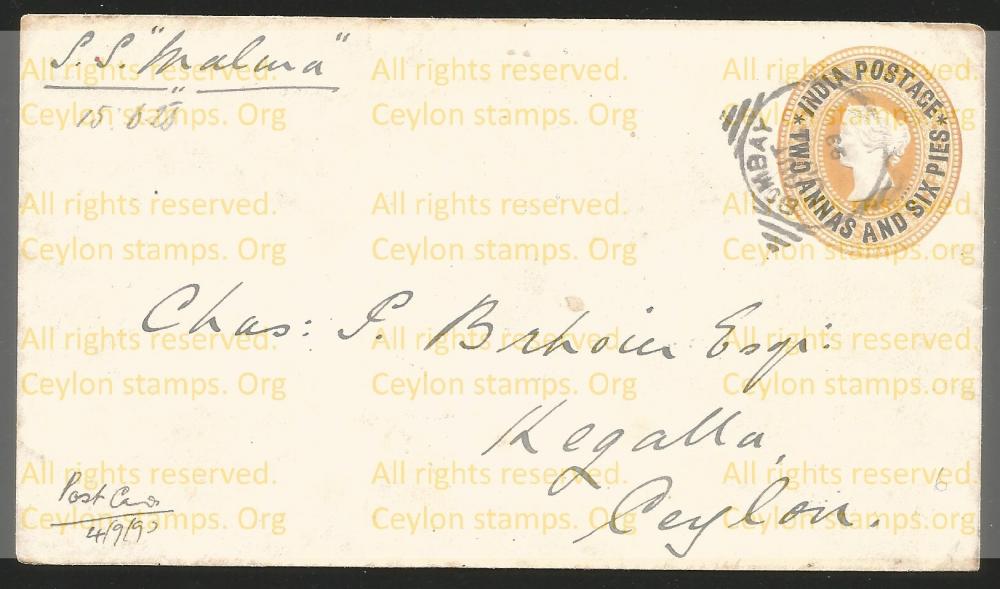 S. S. "Malwa"
*INDIA POSTAGE*
TWO ANNAS AND SIX PIES
BOMBAY
Chas: P. Esqr:
Kegalla,
Ceylon.
Post Card
4/9/90
All rights reserved.
Ceylon stamps. Org
All rights reserved.
Ceylon stamps. Org
All rights reserved.
Ceylon stamps. Org
All rights reserved.
Ceylon stamps. Org
All rights reserved.
Ceylon stamps. Org
All rights reserved.
Ceylon stamps. Org
All rights reserved.
Ceylon stamps. Org
All rights reserved.
Ceylon stamps. Org
All rights reserved.
Ceylon stamps. Org
All rights reserved.
Ceylon stamps. Org
All rights reserved.
Ceylon stamps. Org
All rights reserved.
Ceylon stamps. Org